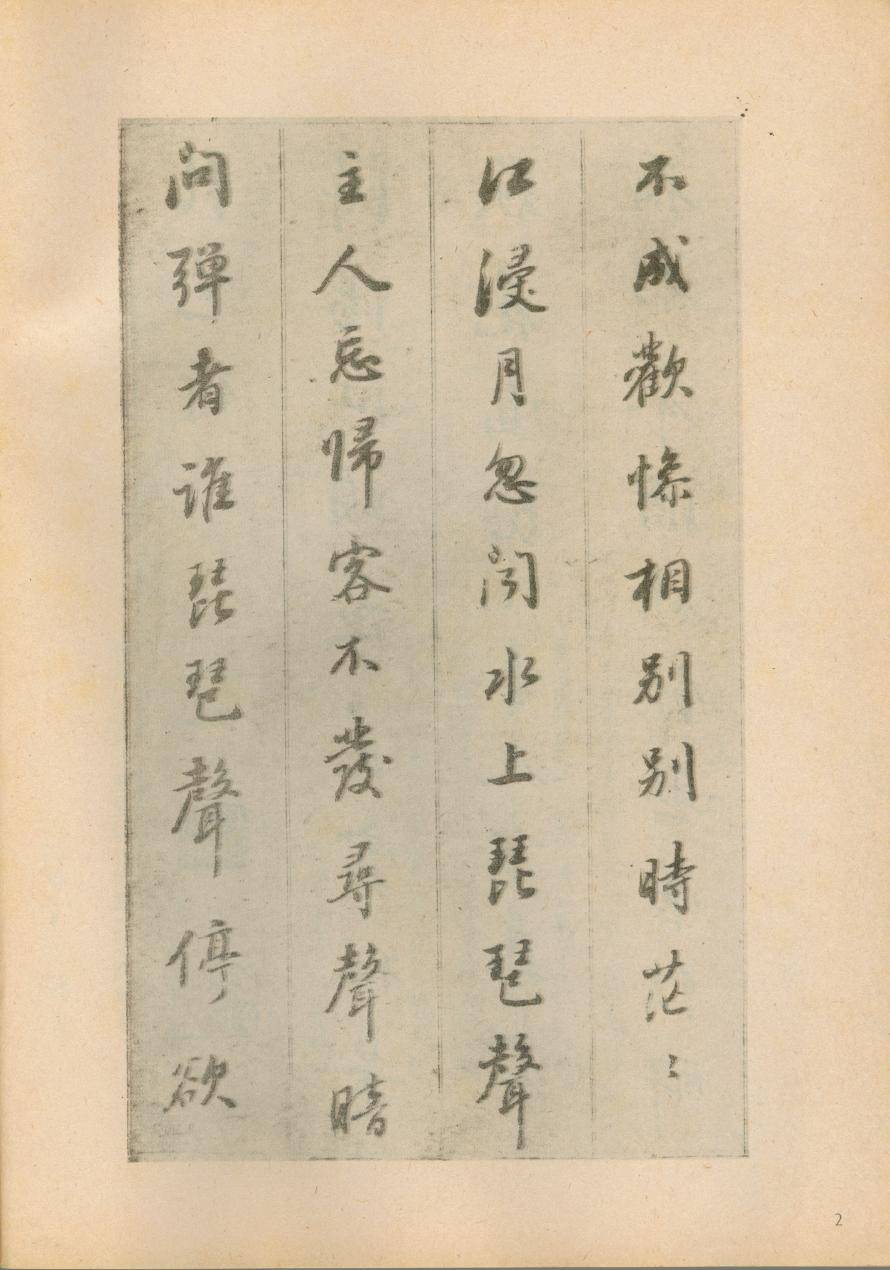 不成歡慘相別別時茫〻
江浸月忽聞水上琵琶聲
主人忘帰客不發尋聲暗
问弹者誰琵琶聲停欲
2